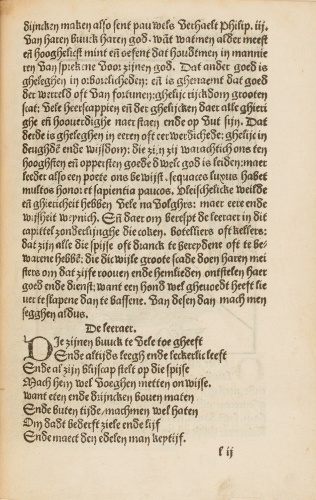 dijncken maken also sent pauwels verhaelt Philip. iij.
Van haren buuck haren god. wāt watmen alder meest
eñ hooghelicst mint eñ oefent dat houdtmen in mannie
ren van sprekene voor zijnen god. Dat ander goed is
gheleghen in orborlicheden: eñ is ghenaemt dat goed
der wereld oft van fortunen: ghelijc rijckdom grooten
scat: vele heerscappien eñ der ghelijcken daer alle ghieri
ghe eñ hoouerdighe naer staen ende op vut sijn. Dat
derde is gheleghen in eeren oft eerwerdichede: ghelijc in
deughdē ende wijsdom: die zijn zij warachtich ons ten
hooghsten eñ oppersten goede d welc god is leiden: maer
leder also een poete ons bewijst. sequaces luxus habet
multos honor et sapientia paucos. Vleischelicke weilde
eñ ghiericheit hebben vele navolghers: maer eere ende
wijsheit weynich. Eñ daer om berespt de leeraer in dit
capittel zonderlinghe die coken. botelliers oft kellers:
dat zijn alle die spijse oft dranck te bereydene oft te be-
warene hebbē: die dicwijle groote scade doen haren mei
sters om dat zijse rooven ende hemlieden ontstelen haer
goed ende dienst: want een hond wel ghevoedt heeft lie
uer te slapene dan te bassene. Van desen dan mach men
segghen aldus.
De leeraer.
DJe zijnen buuck te vele toe gheeft
Ende altijds leegh ende leckerlic leeft
Ende al zijn blijscap stelt op die spijse
Mach hem wel voeghen metten onwise.
want eten ende drijncken boven maten
Ende buten tijde / machmen wel haten
Om dadt bederft ziele ende lijf
Ende maect den edelen man keytijf.
l ij